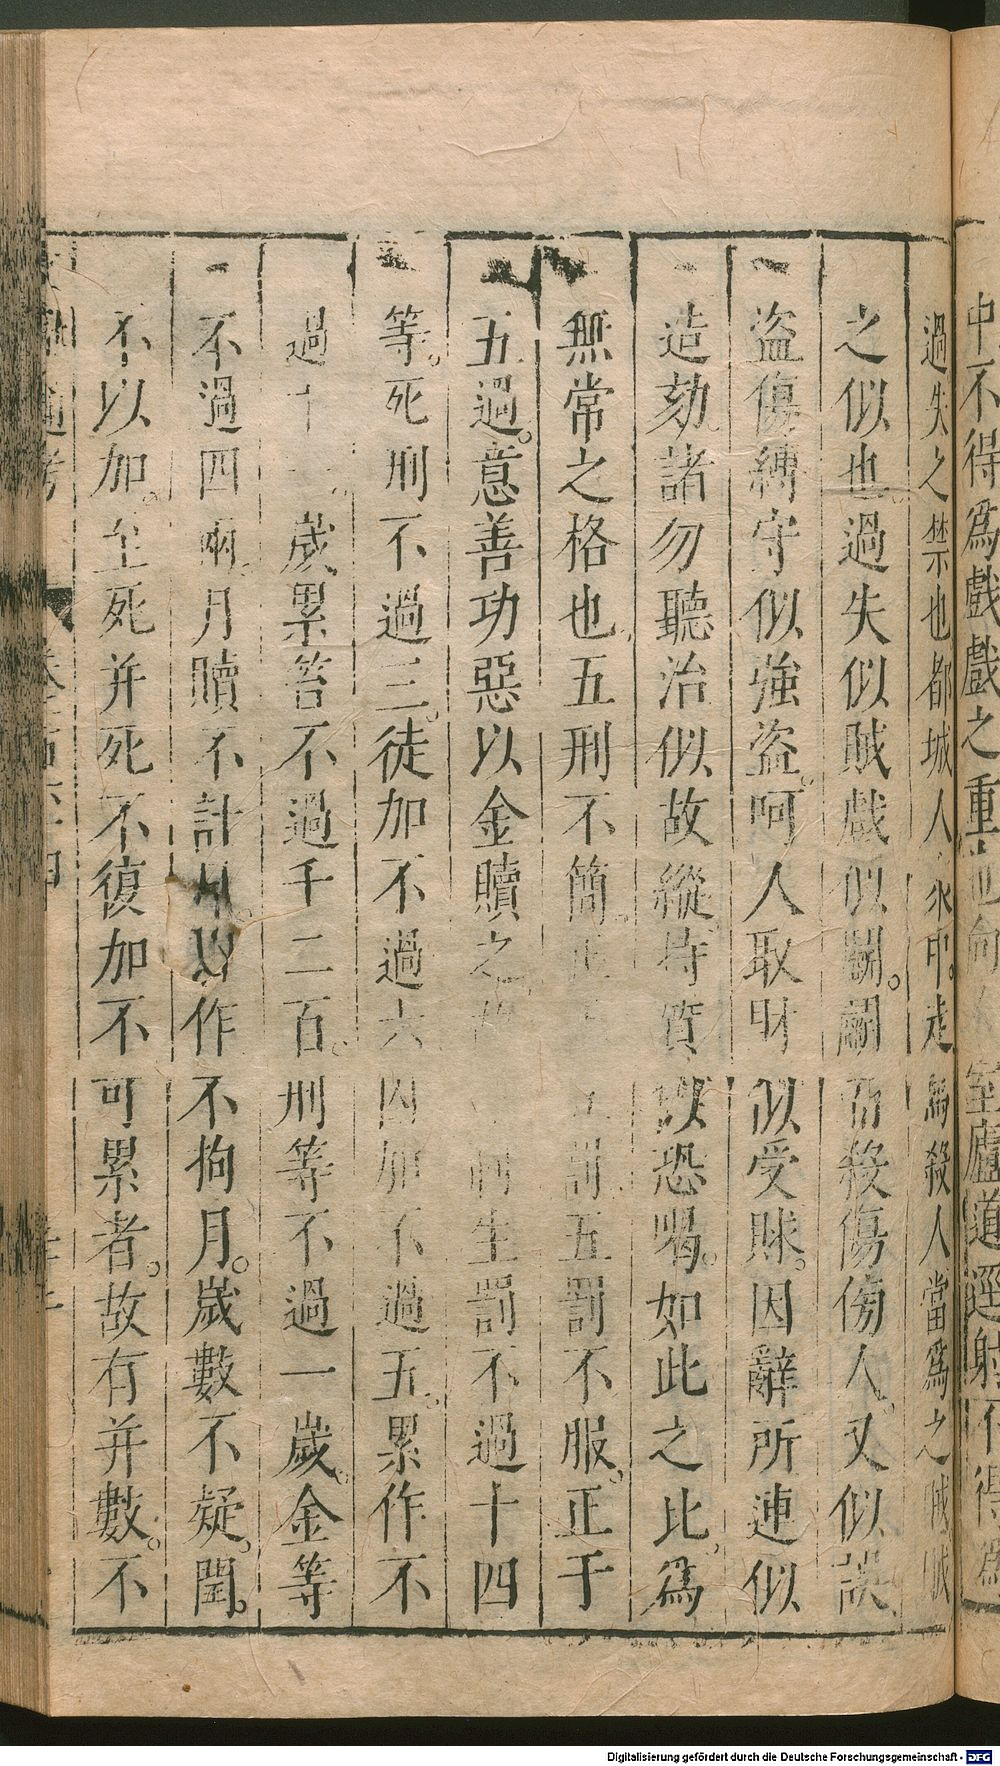 中不得爲戲戲之重 室廬道逕射不得爲
過失之禁也都城人衆中走馬殺人當爲之賊賊
之似也過失似賊戲似鬬鬬而殺傷傍人又似誤
盜傷縛守似強盜呵人取財似受賕因辭所連似
造劾諸勿聽治似故縱持質似恐喝如此之比爲
無常之格也五刑不簡正 五罰五罰不服正于
五過意善功惡以金贖之 制生罰不過十四
等死刑不過三徒加不過六囚加不過五累作不
過十一歲累笞不過千二百刑等不過一歲金等
不過四兩月贖不計日以作不拘月歲數不疑閏
不以加至死并死不復加不可累者故有并數不
Digitalisierung gefördert durch die Deutsche Forschungsgemeinschaft - DFG